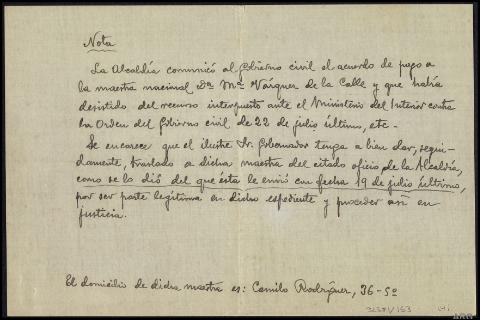 Nota
La Alcaldía comunicó al Gobierno civil el acuerdo de pago a
la maestra nacional Dª Mª Vázquez de la Calle y que había
desistido del recurso interpuesto ante el Ministerio del Interior contra
la Orden del Gobierno civil de 22 de julio último, etc-
Se encarece que el ilustre Sr. Gobernador tenga a bien dar, segui-
damente, traslado a dicha maestra del citado oficio de la Alcaldía,
como se lo dió del que ésta le envió con fecha 19 de julio último,
por ser parte legítima en dicho expediente y proceder así en
justicia.
El domicilio de dicha maestra es: Camilo Rodríguez, 36-5º